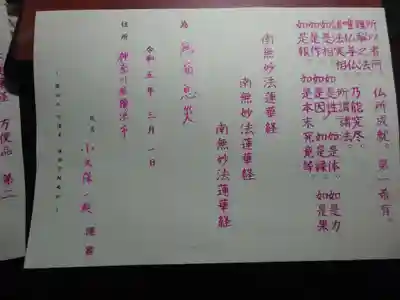 所以者何 仏所成就。第一希有。
難解之法 唯仏与仏 乃能究尽。
諸法実相 所謂諸法
如是相 如是性 如是体 如是力
如是作 如是因 如是縁 如是果
如是報 如是本末究竟等
南無妙法蓮華経
南無妙法蓮華経
南無妙法蓮華経
為 息災
令和五年 三月 一
住所 神奈川県
氏名 小久保一
方便品 第二